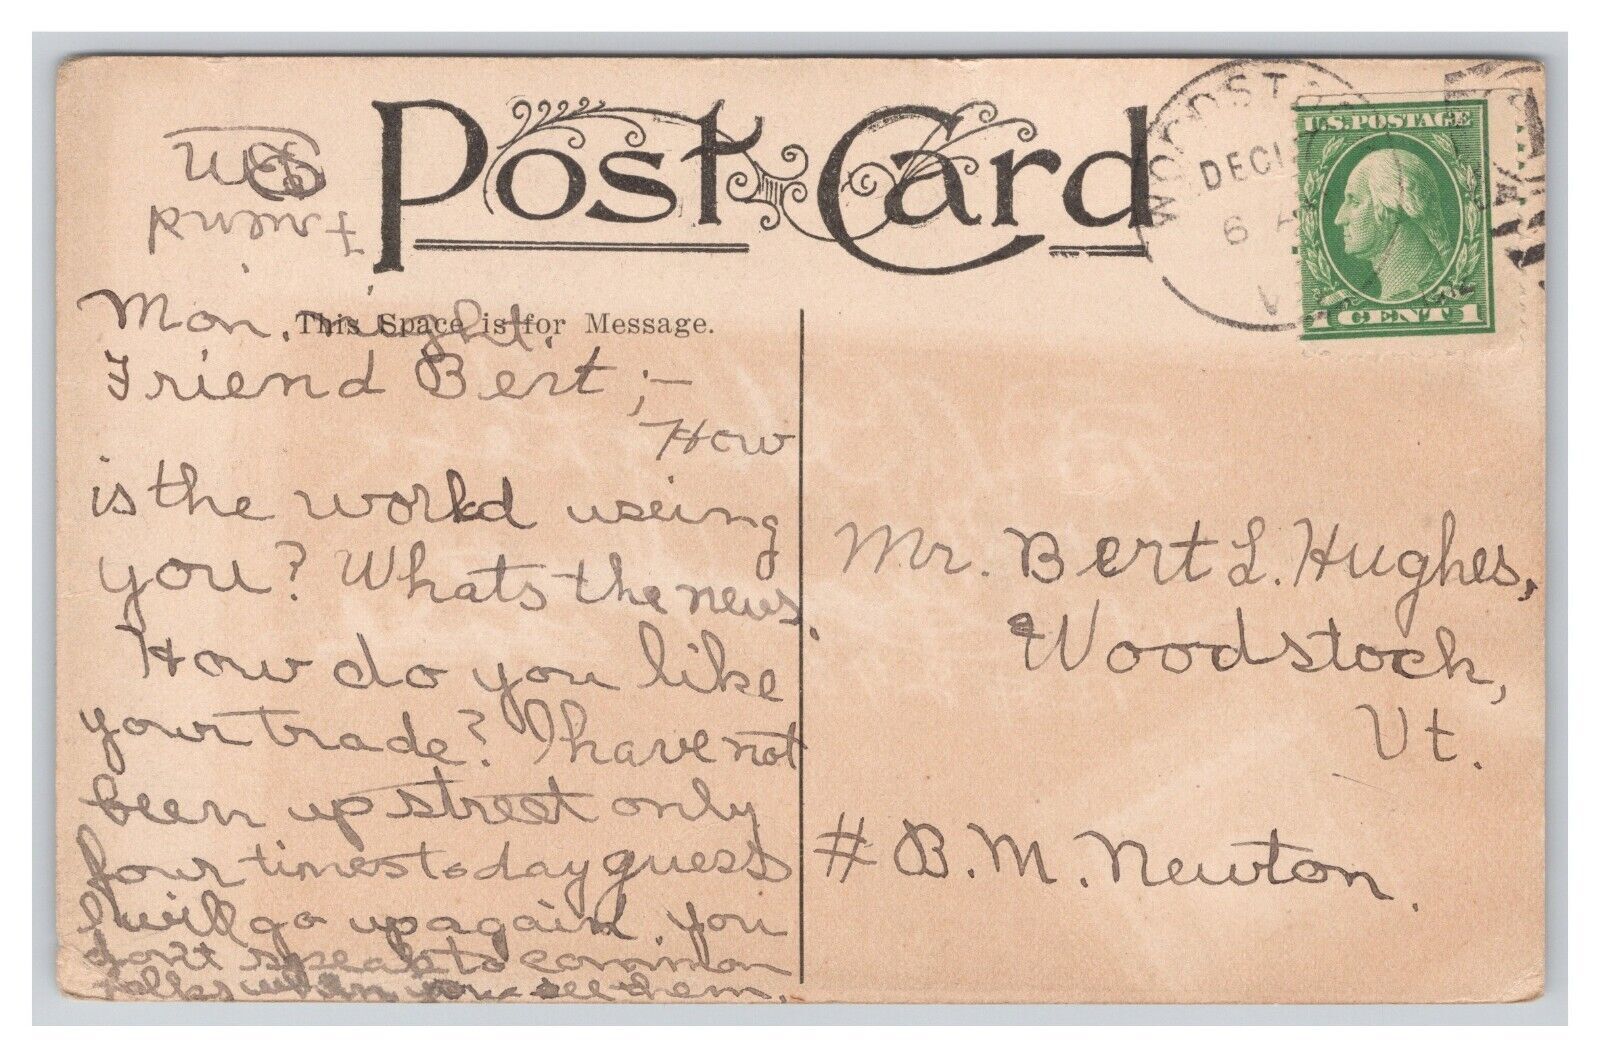 Post Card
WOODSTO
DEC
6 A
V
U.S. POSTAGE
1 CENT 1
This Space is for Message.
Mon. night.
Friend Bert ;-
How
is the world useing
you? Whats the news.
How do you like
your trade? I have not
been up street only
four times to day guess
I will go up again. you
don't speak to common
folks when you see them.
Friend
Mr. Bert L. Hughes,
Woodstock,
Vt.
# B. M. Newton.